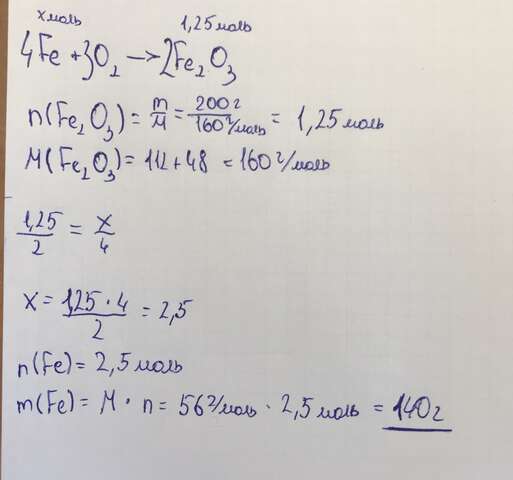 x моль 1,25 моль
4Fe + 3O₂ → 2Fe₂O₃
n(Fe₂O₃) = m/M = 200 г/160 г/моль = 1,25 моль
M(Fe₂O₃) = 112 + 48 = 160 г/моль
1,25/2 = x/4
x = 1,25 · 4/2 = 2,5
n(Fe) = 2,5 моль
m(Fe) = M · n = 56 г/моль · 2,5 моль = 140 г